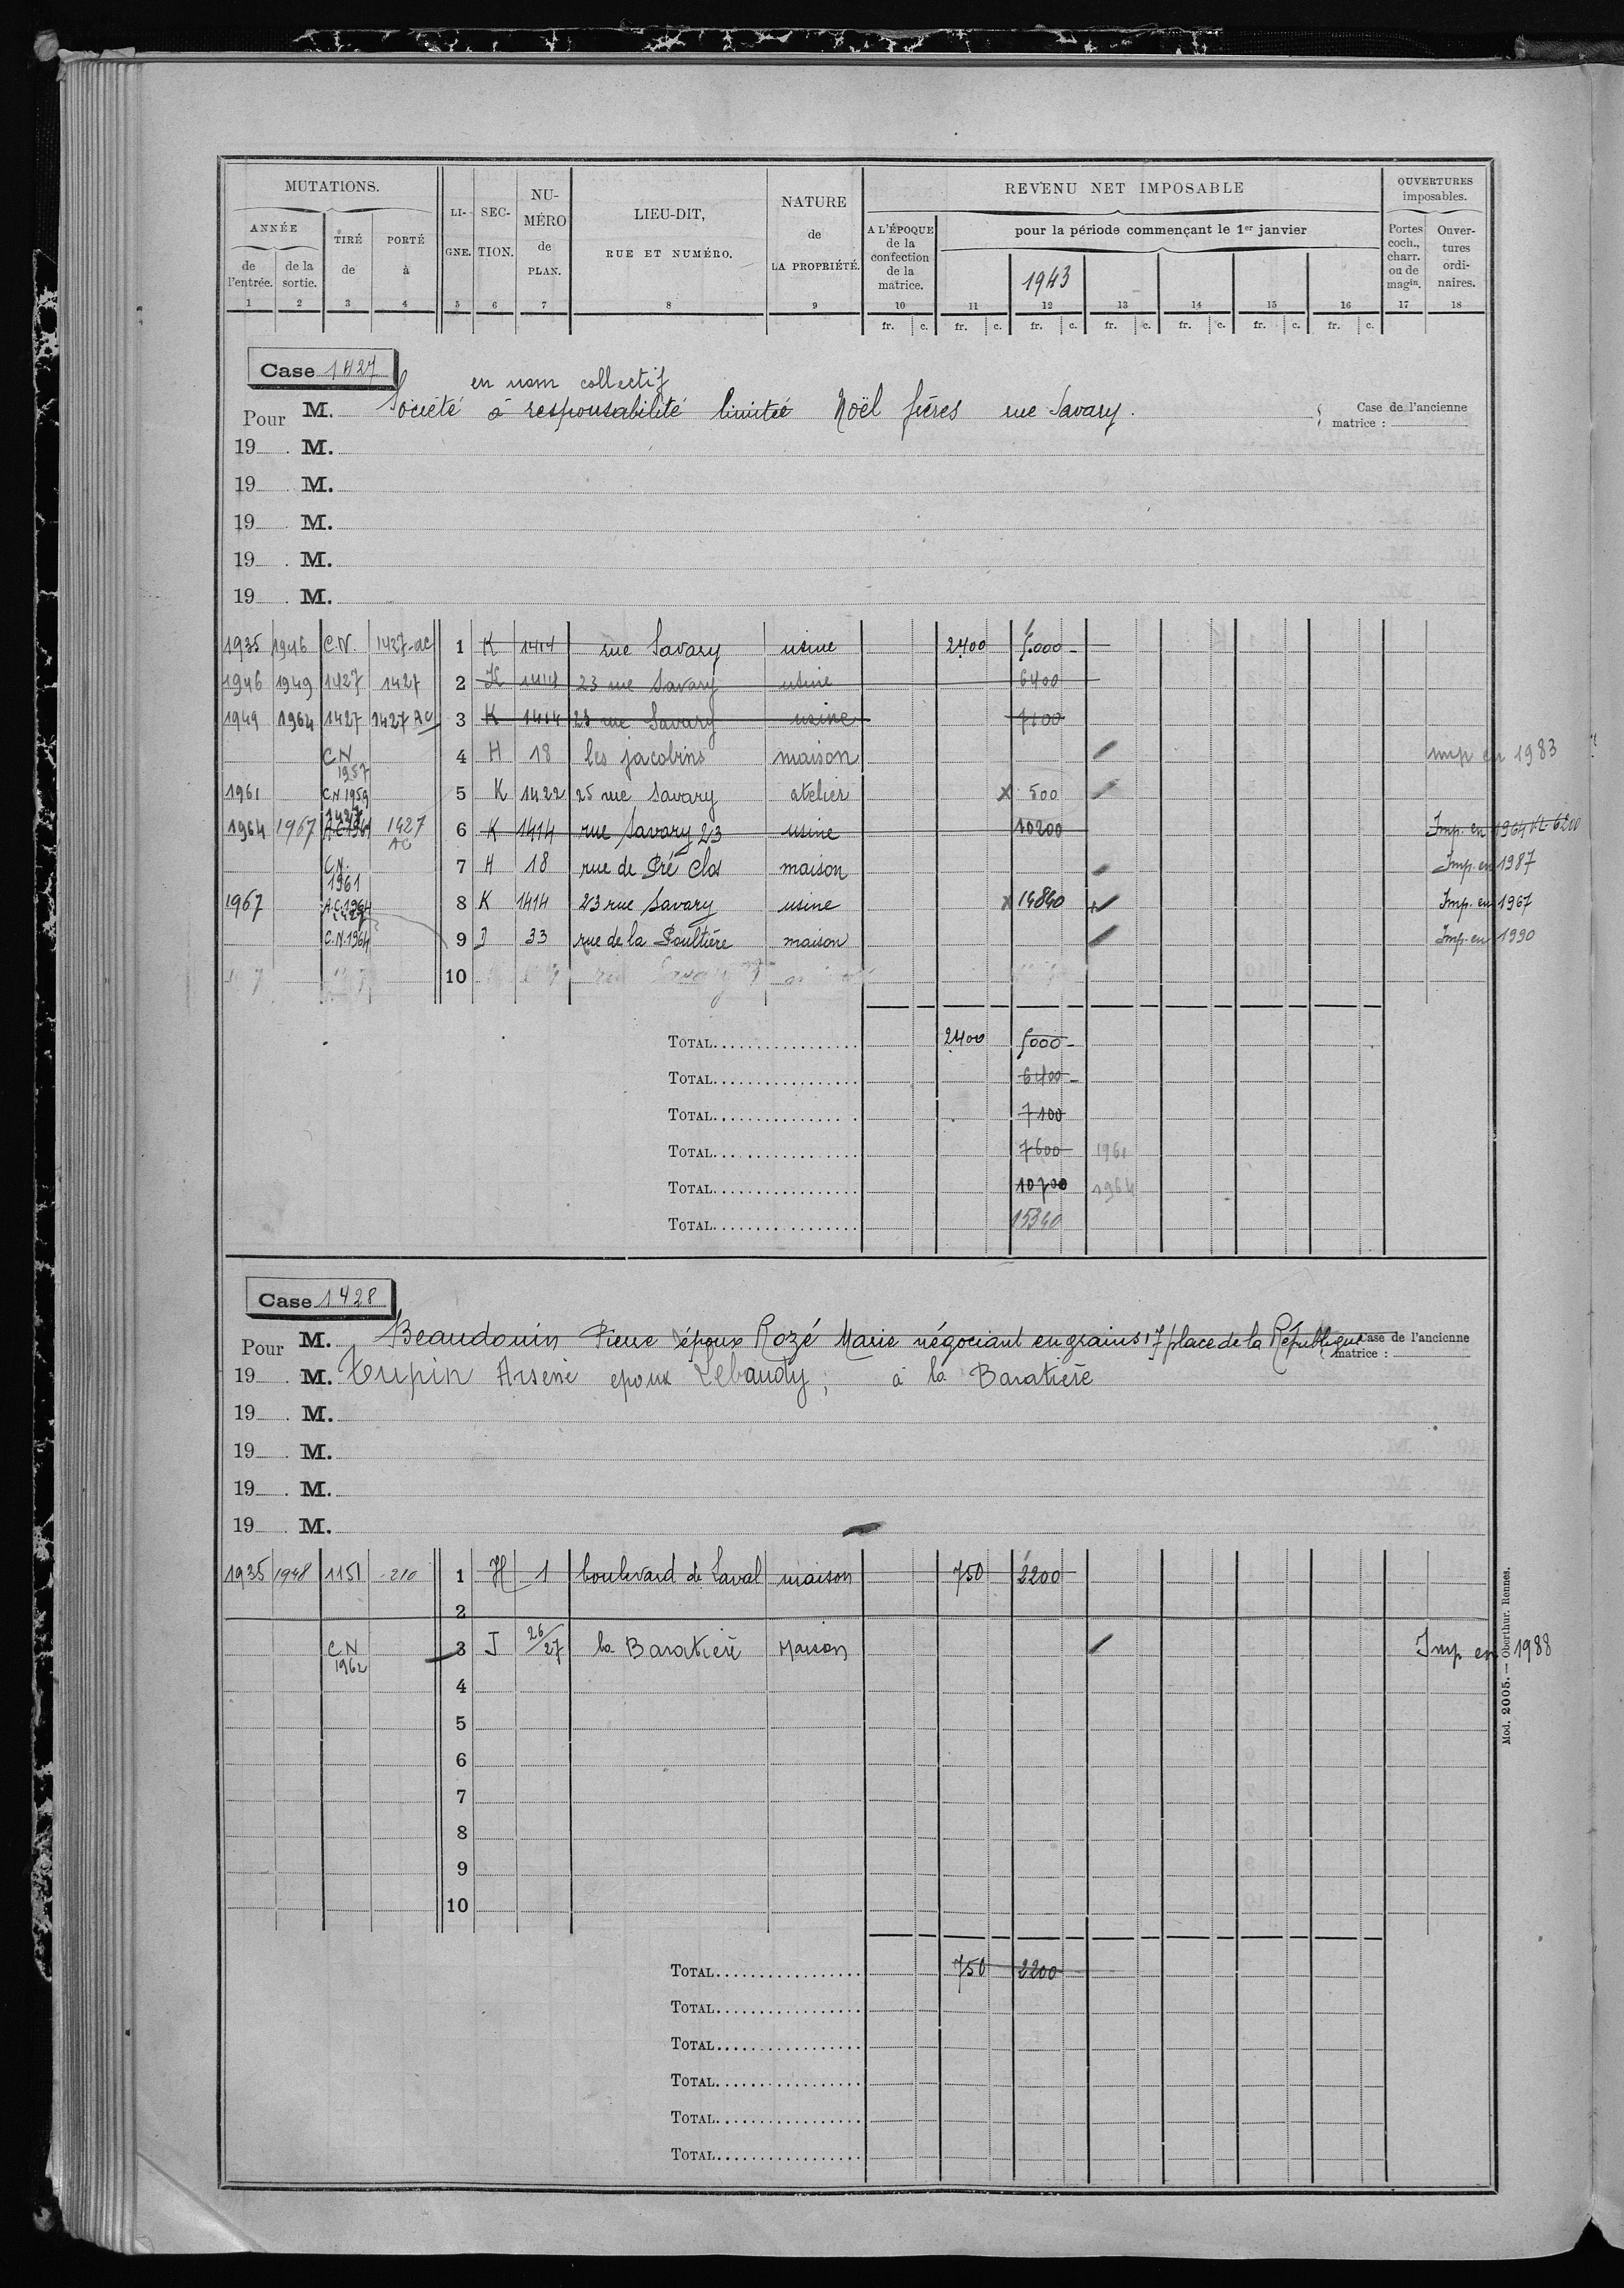 MUTATIONS. LI- SEC- NU- LIEU-DIT, NATURE REVENU NET IMPOSABLE OUVERTURES
imposables.
ANNÉE TIRÉ PORTÉ GNE. TION. MÉRO RUE ET NUMÉRO. de A L'ÉPOQUE pour la période commençant le 1er janvier Portes Ouver-
de de la de à de LA PROPRIÉTÉ. de la coch., tures
l'entrée. sortie. PLAN. confection charr. ordi-
de la 1943 ou de naires.
matrice. magin.
1 2 3 4 5 6 7 8 9 10 11 12 13 14 15 16 17 18
fr. c. fr. c. fr. c. fr. c. fr. c. fr. c. fr. c.
Case 1427
en nom collectif
Pour M. Société à responsabilité limitée Noël frères rue Savary. Case de l'ancienne
matrice :
19 . M.
19 . M.
19 . M.
19 . M.
19 . M.
1935 1946 C.N. 1427-ac 1 K 1414 rue Savary usine 2400 5000
1946 1949 1427 1427 2 K 1414 23 rue Savary usine 6400
1949 1964 1427 1427 AC 3 K 1414 23 rue Savary usine 7100
CN 1957 4 H 18 les jacobins maison imp en 1983
1961 CN 1959 5 K 1422 25 rue Savary atelier x 500
1964 1967 1427 A.C. 1961 1427 AC 6 K 1414 rue Savary 23 usine 10200 Imp. en 1964 6200
CN. 1961 7 H 18 rue de Pré Clos maison Imp. en 1987
1967 A.C. 1964 1427 8 K 1414 23 rue Savary usine x 14840 Imp. en 1967
C.N. 1964 9 J 33 rue de la Poultière maison Imp. en 1990
10
TOTAL 2400 5000
TOTAL 6400
TOTAL 7100
TOTAL 7600 1961
TOTAL 10700 1964
TOTAL 15340
Case 1428
Pour M. Beaudouin Pierre époux Rozé Marie négociant en grains 17 place de la République Case de l'ancienne
matrice :
19 . M. Turpin Arsène epoux Lebaudy, à la Baratière
19 . M.
19 . M.
19 . M.
19 . M.
1935 1948 1151 210 1 H 1 boulevard de Laval maison 750 2200
2
CN 1962 3 J 26/27 la Baratière Maison Imp en 1988
4
5
6
7
8
9
10
TOTAL 750 2200
TOTAL
TOTAL
TOTAL
TOTAL
TOTAL
Mod. 2005. — Oberthur. Rennes.